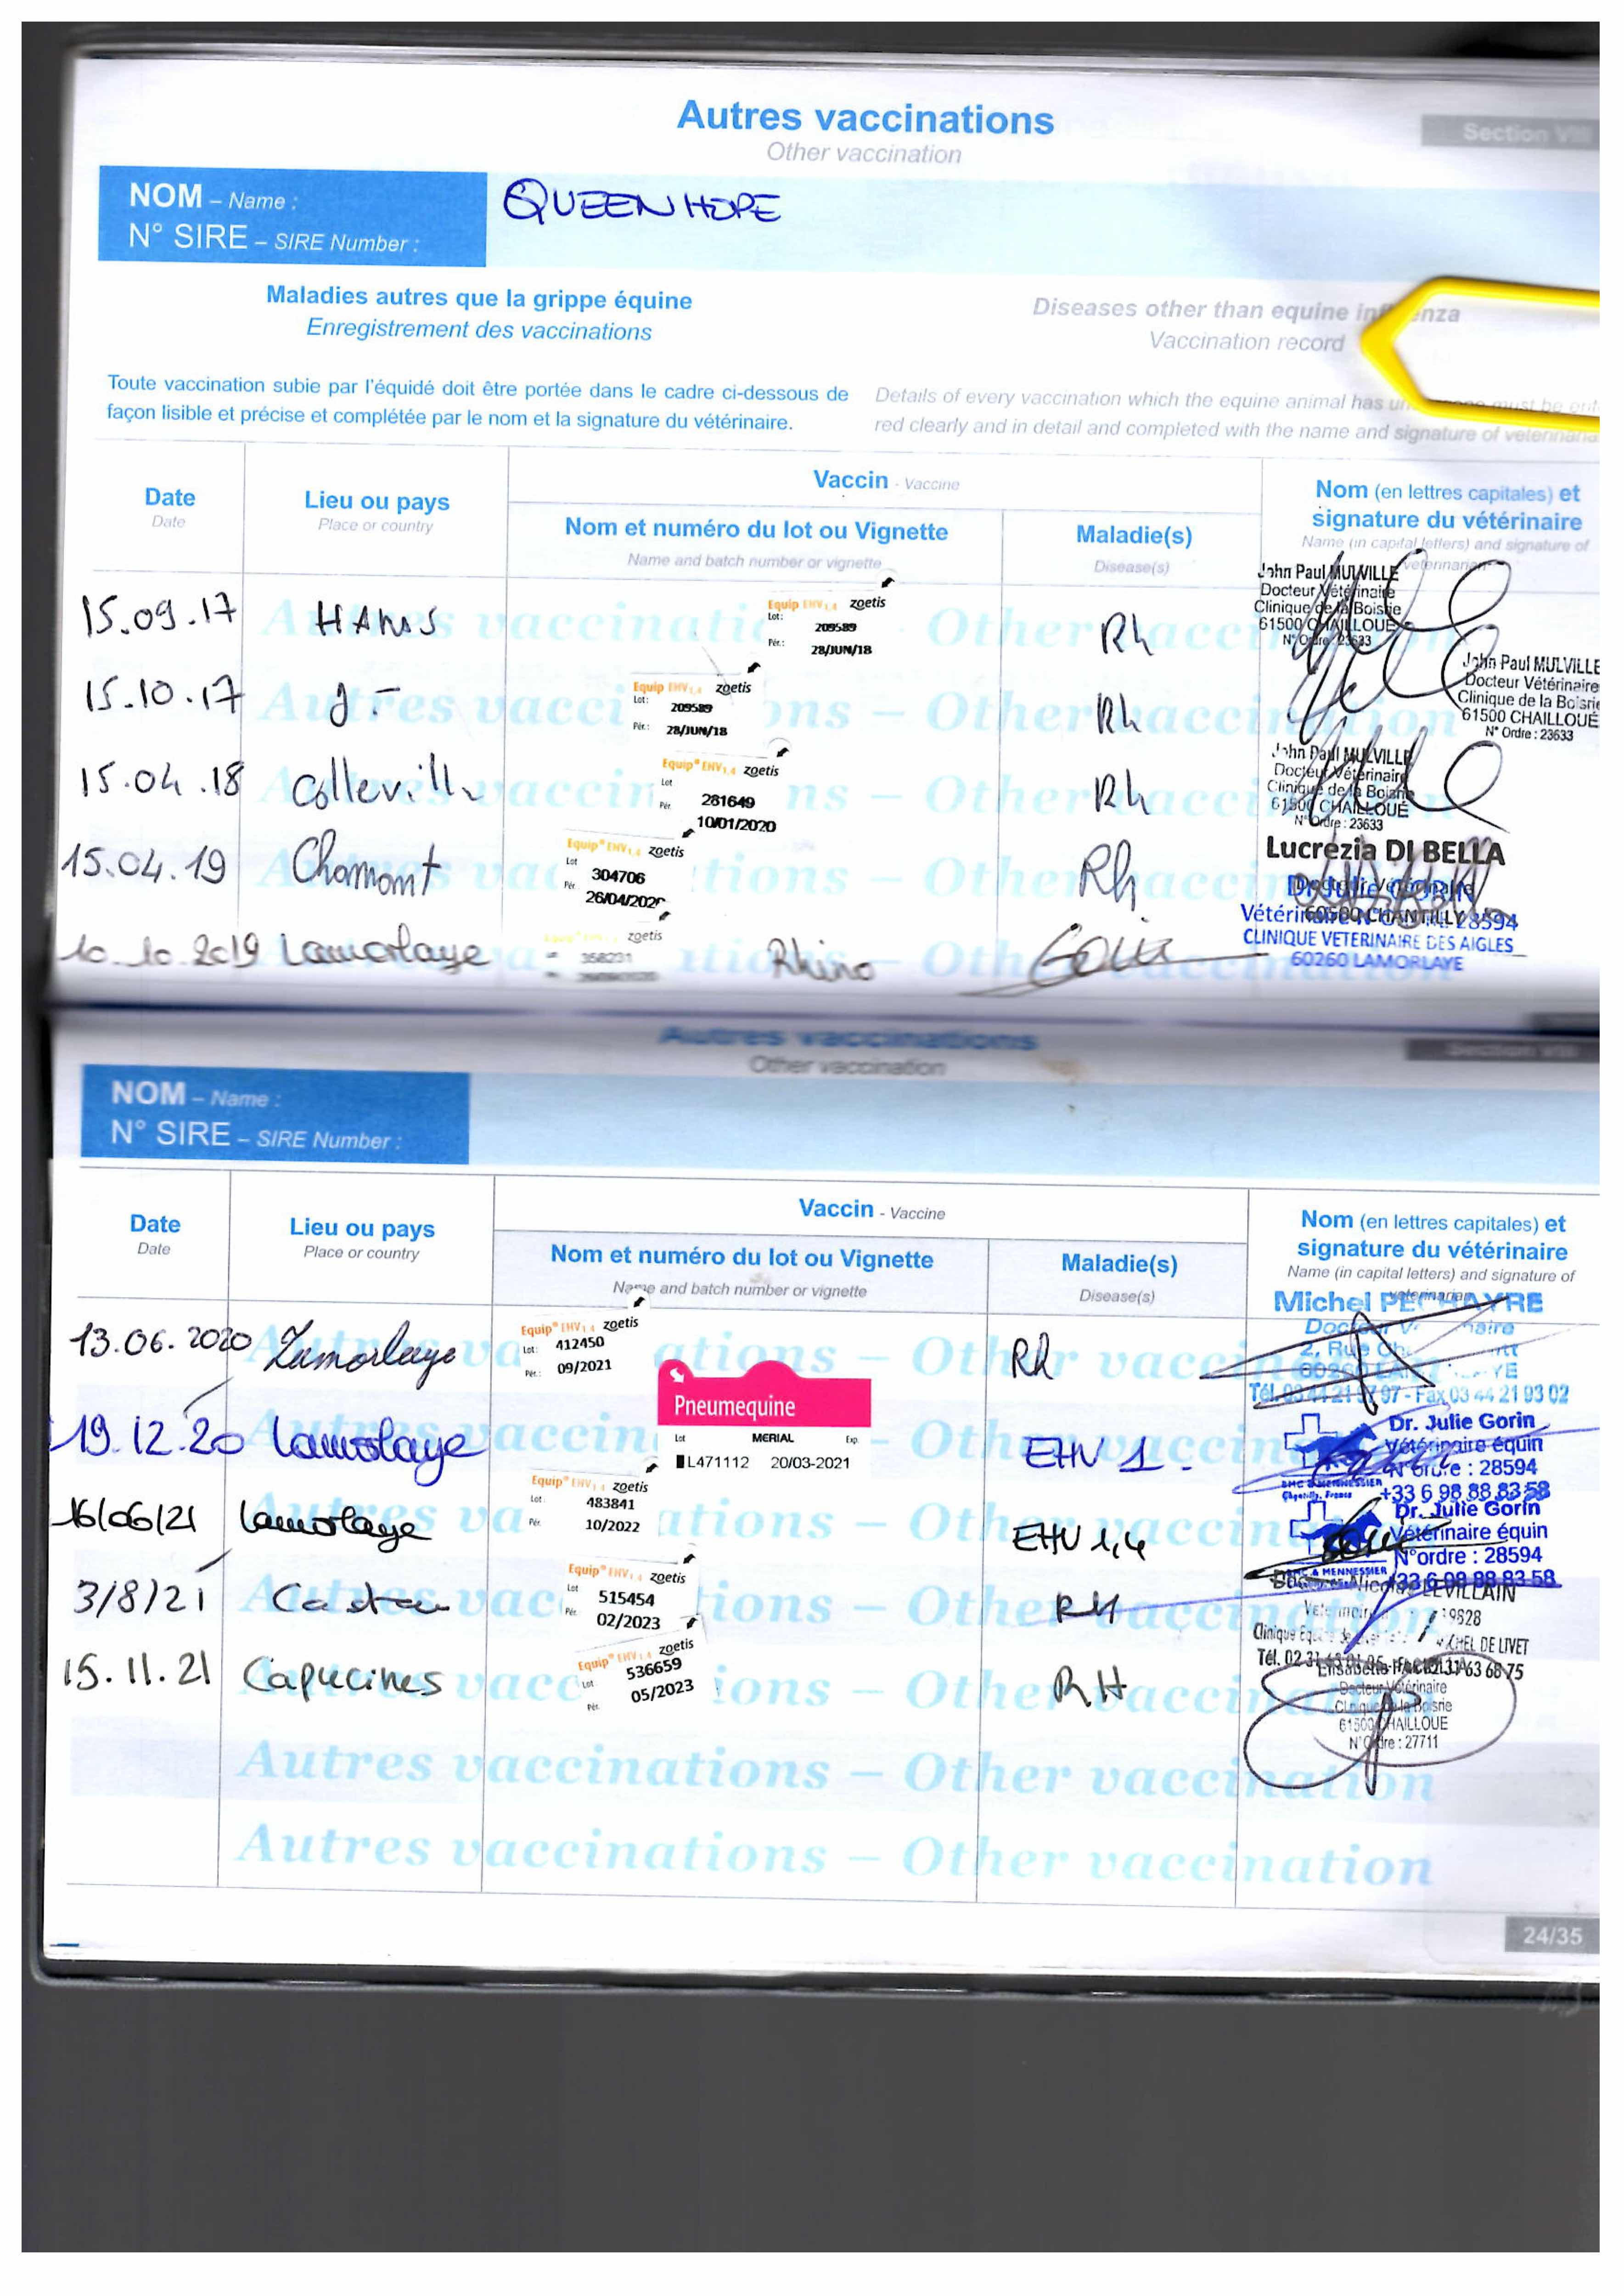 Autres vaccinations
Section VIII
Other vaccination
NOM – Name :
QUEENHOPE
N° SIRE – SIRE Number :
Maladies autres que la grippe équine
Enregistrement des vaccinations
Diseases other than equine
Vaccination record
Toute vaccination subie par l'équidé doit être portée dans le cadre ci-dessous de
façon lisible et précise et complétée par le nom et la signature du vétérinaire.
Details of every vaccination which the equine animal has must be
red clearly and in detail and completed with the name and signature of
Date
Date
Lieu ou pays
Place or country
Vaccin - Vaccine
Nom et numéro du lot ou Vignette
Name and batch number or vignette
Maladie(s)
Disease(s)
Nom (en lettres capitales) et
signature du vétérinaire
Name (in capital letters) and signature of
veterinarian
15.09.17
Equip EHV1,4 zoetis
Lot: 209589
Pér.: 28/JUN/18
Rh
John Paul MULVILLE
Docteur Vétérinaire
Clinique de la Boisrie
61500 CHAILLOUÉ
N° Ordre : 23633
15.10.17
Equip EHV1,4 zoetis
Lot: 209589
Pér.: 28/JUN/18
Rh
John Paul MULVILLE
Docteur Vétérinaire
Clinique de la Boisrie
61500 CHAILLOUÉ
N° Ordre : 23633
15.04.18
Equip® EHV1,4 zoetis
Lot 281649
Pér. 10/01/2020
Rh
John Paul MULVILLE
Docteur Vétérinaire
Clinique de la Boisrie
61500 CHAILLOUÉ
N° Ordre : 23633
15.04.19
Chamant
Equip® EHV1,4 zoetis
Lot 304706
Pér. 26/04/2020
Rh
Lucrezia DI BELLA
Docteur Vétérinaire
60500 CHANTILLY
10.10.2019
Lamorlaye
zoetis
358231
Rhino
Dr Julie GORIN
28594
CLINIQUE VETERINAIRE DES AIGLES
60260 LAMORLAYE
Autres vaccinations
Section VIII
Other vaccination
NOM – Name :
N° SIRE – SIRE Number :
Date
Date
Lieu ou pays
Place or country
Vaccin - Vaccine
Nom et numéro du lot ou Vignette
Name and batch number or vignette
Maladie(s)
Disease(s)
Nom (en lettres capitales) et
signature du vétérinaire
Name (in capital letters) and signature of
veterinarian
13.06.2020
Lamorlaye
Equip® EHV1,4 zoetis
Lot: 412450
Pér.: 09/2021
Rh
Michel PECHAYRE
19.12.20
Lamorlaye
Pneumequine
Lot MERIAL Exp.
L471112 20/03-2021
EHV 1.
Dr. Julie Gorin
Vétérinaire équin
N°ordre : 28594
+33 6 98 88 83 58
16/06/21
Lamorlaye
Equip® EHV1,4 zoetis
Lot 483841
Pér. 10/2022
EHV 1,4
Dr. Julie Gorin
Vétérinaire équin
N°ordre : 28594
+33 6 98 88 83 58
3/8/21
Equip® EHV1,4 zoetis
Lot 515454
Pér. 02/2023
RH
LEVILLAIN
15.11.21
Capucines
Equip® EHV1,4 zoetis
Lot 536659
Pér. 05/2023
RH
Docteur Vétérinaire
Clinique de la Boisrie
61500 CHAILLOUE
N° Ordre : 27711
Autres vaccinations – Other vaccination
Autres vaccinations – Other vaccination
24/35